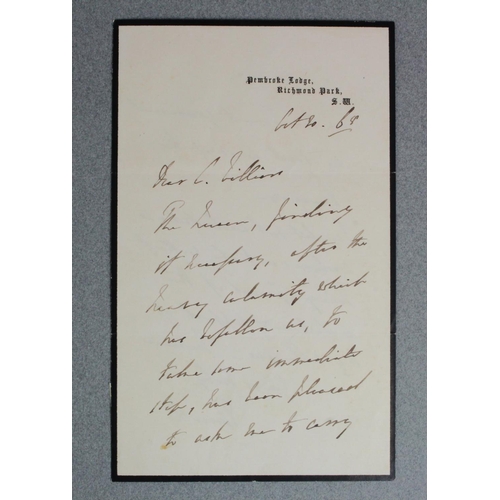 Pembroke Lodge,
Richmond Park,
S.W.
Oct 20. 65
Dear C. Villiers
The Queen, finding
it necessary, after the
heavy calamity which
has befallen us, to
take some immediate
step, has been pleased
to ask me to carry